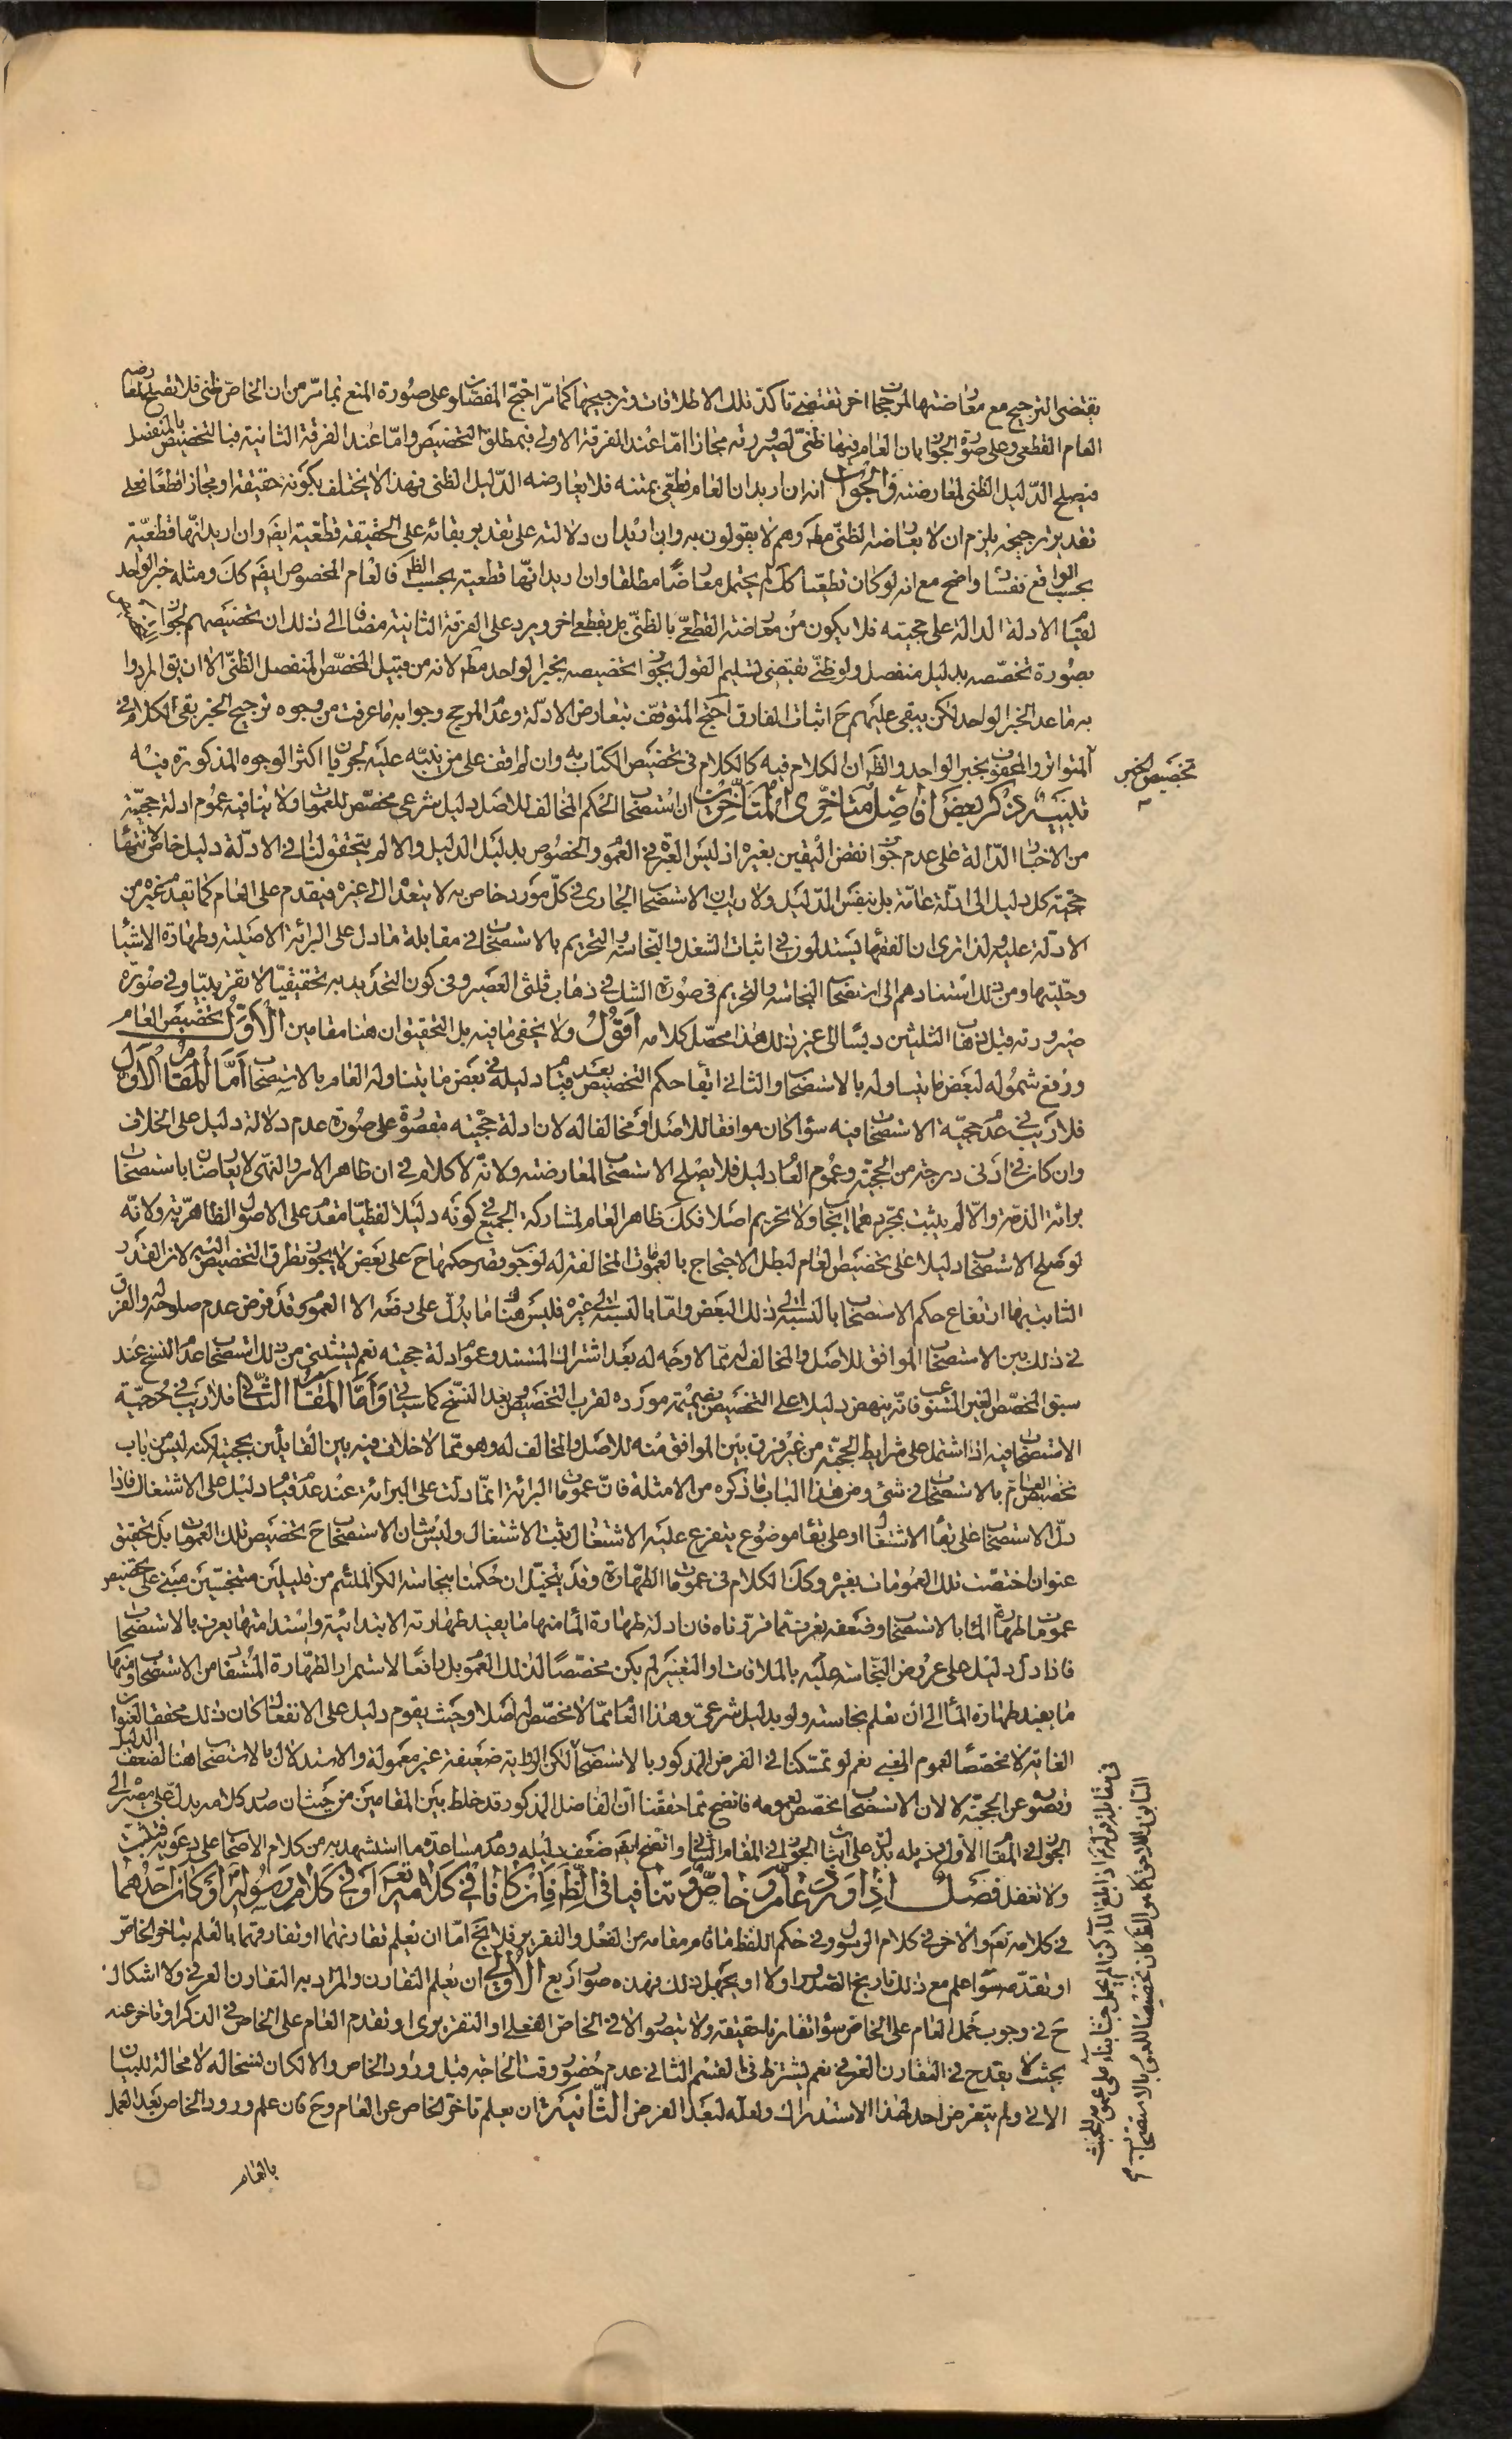 يقتضى الترجيح مع معارضتها لمرجحات اخر تقتضى تأكد تلك الاطلاقات وترجيحها كما مرّ احتجّ المفصّلون على صورة المنع بما مرّ من ان الخاصّ ظنى فلا يصلح لمعارضة
العام القطعى وعلى صورة الجواز بان العام فيها ظنىّ لصيرورته مجازا امّا عند الفرقة الاولى فبمطلق التخصيص وامّا عند الفرقة الثانية فبالتخصيص بالمنفصل
فيصلح الدّليل الظنى لمعارضته والجواب انه ان اريد ان العام قطعّى بمتنه فلا يعارضه الدّليل الظنى فهذا لا يختلف بكونه حقيقة او مجازا قطعًا فعلى
تقدير ترجيحه يلزم ان لا يعارضه الظنىّ مطم وهم لا يقولون به وان اريد ان دلالته على تقدير بقائه على الحقيقة قطعيّة ايضم وان اريد انّها قطعيّة
بحسب الواقع نفسا واضح مع انه لو كان قطعيّا كك لم يحتمل معارضًا مطلقا وان اريد انّها قطعية بحسب الظم فالعام المخصوص ايضم كك ومثله خبر الواحد
لقيام الادلة الدالة على حجيته فلا يكون من معارضة القطعىّ بالظنىّ بل بقطعى اخر ويرد على الفرقة الثانية مضافا الى ذلك ان تخصيصهم الجواز
بصورة تخصّصه بدليل منفصل ولو ظنىّ يقتضى تسليم القول بجواز تخصيصه بخبر الواحد مطم لانه من قبيل المخصّص المنفصل الظنىّ الا ان يق المراد
به ما عدا الخبر الواحد لكن يبقى عليهم ح اثبات الفارق احتج المتوقّف بتعارض الادلّة وعدم المرجح وجوابه ما عرفت من وجوه ترجيح الخبر بقى الكلام فى
المتواتر والمحفوف بخبر الواحد والظم ان الكلام فيه كالكلام فى تخصيص الكتاب به وان لم اقف على من ينبّه عليه لجريان اكثر الوجوه المذكورة فيه
تخصيص الخبر
تنبيه ذكر بعض افاضل متاخرى المتاخرين ان استصحاب الحكم المخالف للاصل دليل شرعى مخصّص للعمومات ولا ينافيه عموم ادلة حجيّته
من الاخبار الدّالة على عدم جواز نقض اليقين بغيره اذ ليس العبرة فى العموم والخصوص بدليل الدليل والا لم يتحقق لنا فى الادلّة دليل خاصّ لانتهاء
حجّية كل دليل الى ادلّة عامّة بل بنفس الدّليل ولا ريب ان الاستصحاب الجارى فى كلّ مورد خاص به لا يتعدى الى غيره فيقدم على العام كما يقدم غيره من
الادلّة عليه ولذا ترى ان الفقهاء يستدلون فى اثبات الشغل والنجاسة والتحريم بالاستصحاب فى مقابلة ما دل على البرائة الاصلية وطهارة الاشياء
وحلّيتها ومن ذلك استنادهم الى استصحاب النجاسة والتحريم فى صورة الشك فى ذهاب ثلثى العصير وفى كون التحديد به تحقيقيّا لا تقريبيّا وفى صورة
صيرورته قبل ذهاب الثلثين دبسا الى غير ذلك هذا محصّل كلامه اقول ولا يخفى ما فيه بل التحقيق ان هنا مقامين الاول تخصيص العام
ورفع شموله لبعض ما يتناوله بالاستصحاب والثانى ابقاء حكم التخصيص بعد قيام دليله فى بعض ما يتناوله العام بالاستصحاب امّا المقام الاول
فلا ريب فى عدم حجيّة الاستصحاب فيه سواء كان موافقا للاصل او مخالفا له لان ادلة حجيّته مقصورة على صورة عدم دلالة دليل على الخلاف
وان كان فى ادنى درجة من الحجيّة وعموم العام دليل فلا يصلح الاستصحاب لمعارضته ولانّه لا كلام فى ان ظاهر الامر والنهى لا يعارضان باستصحاب
برائة الذمة والّا لم يثبت بمجرّدهما ايجاب ولا تحريم اصلا فكك ظاهر العام لمشاركة الجميع فى كونه دليلا لفظيّا مقدما على الاصول الظاهريّة ولانّه
لو صلح الاستصحاب دليلا على تخصيص العام لبطل الاحتجاج بالعمومات المخالفة له لوجوب قصر حكمها ح على بعض لا يجوز تطرق التخصيص اليه لان القدر
الثابت بها ارتفاع حكم الاستصحاب بالنسبة الى ذلك البعض وامّا بالنسبة الى غيره فليس هنا ما يدلّ على رفعه الا العموم وقد فرض عدم صلوحه له والفرق
فى ذلك بين الاستصحاب الموافق للاصل والمخالف له ممّا لا وجه له بعد اشتراك المستند وعموم ادلة حجيته نعم يستثنى من ذلك استصحاب عدم النسخ عند
سبق المخصّص الغير المستوعب فانّه ينهض دليلا على التخصيص بضميمة مورده لقرب التخصيص وبعد النسخ كما سياتى وامّا المقام الثانى فلا ريب فى حجيّة
الاستصحاب فيه اذا اشتمل على شرايط الحجيّة من غير فرق بين الموافق منه للاصل والمخالف له وهو ممّا لا خلاف فيه بين القائلين بحجيته لكنه ليس من باب
تخصيص العام بالاستصحاب فى شئ ومن هذا الباب ما ذكره من الامثلة فانّ عمومات البرائة انمّا دلت على البرائة عند عدم قيام دليل على الاشتغال فاذا
دلّ الاستصحاب على بقاء الاشتغال او على بقاء موضوع يتفرع عليه الاشتغال ثبت الاشتغال وليس شان الاستصحاب ح تخصيص تلك العمومات بل تحقيق
عنوان اختصّت تلك العمومات بغيره وكذا الكلام فى عمومات الطهارة وقد يتخيّل ان حكمنا بنجاسة الكر الملتئم من قليلين متنجسّين مبنى على تخصيص
عمومات طهارة الماء بالاستصحاب وضعفه يعرف ممّا قررناه فان ادلة طهارة الماء منها ما يفيد طهارته الابتدائية واستدامتها يعرف بالاستصحاب
فاذا دلّ دليل على عروض النجاسة عليه بالملاقات او التغيير لم يكن مخصّصًا لذلك العموم بل رافعًا لاستمرار الطهارة المستفاد من الاستصحاب ومنها
ما يفيد طهارة الماء الى ان تعلم نجاسته ولو بدليل شرعىّ وهذا العام ممّا لا مخصّص له اصلا وحيث يقوم دليل على الانفعال كان ذلك محققا لعنوان
الغاية لا مخصّصًا لعموم المغيى نعم لو تمسّكنا فى الفرض المذكور بالاستصحاب لكن الرواية ضعيفة غير معمولة والاستدلال بالاستصحاب هنا لضعف الدليل
وقصوره عن الحجيّة لا لان الاستصحاب مخصّص لعمومه فاتضح ممّا حققنا انّ الفاضل المذكور قد خلط بين المقامين من حيث ان صدر كلامه يدلّ على مصيره الى
الجواز فى المقام الاول وذيله يدلّ على اثبات الجواز فى المقام الثانى واتضح ايضم ضعف دليله وعدم مساعدة ما استشهد به من كلام الاصحاب على دعويه فتثبت
ولا تغفل فصل اذا ورد عامّ وخاصّ وتنافيا فى الظم فان كانا فى كلامه تعم او فى كلام رسوله او كان احدهما
فى كلامه تعم والاخر فى كلام الرسول وفى حكم اللفظ ما قام مقامه من الفعل والتقرير فلا يخ امّا ان يعلم تقارنهما او تفارقهما بالعلم بتاخر الخاصّ
او تقدّمه سواء علم مع ذلك تاريخ الصّدور اولا او يجهل ذلك فهذه صور اربع الاولى ان يعلم التقارن والمراد به التقارن العرفى ولا اشكال
ح فى وجوب حمل العام على الخاص سواء تقارنا حقيقة ولا يتصور الا فى الخاص الفعلى او التقريرى او تقدم العام على الخاص فى الذكر او تاخر عنه
بحيث لا يقدح فى التقارن العرفى نعم يشترط فى القسم الثانى عدم حضور وقت الحاجة قبل ورود الخاص والا لكان نسخا له لا محالة للبيان
الاتى ولم يتعرض احد لهذا الاستدراك ولعله لبعد الفرض الثانية ان يعلم تاخر الخاص عن العام وح فان علم ورود الخاص بعد العمل
بالعام